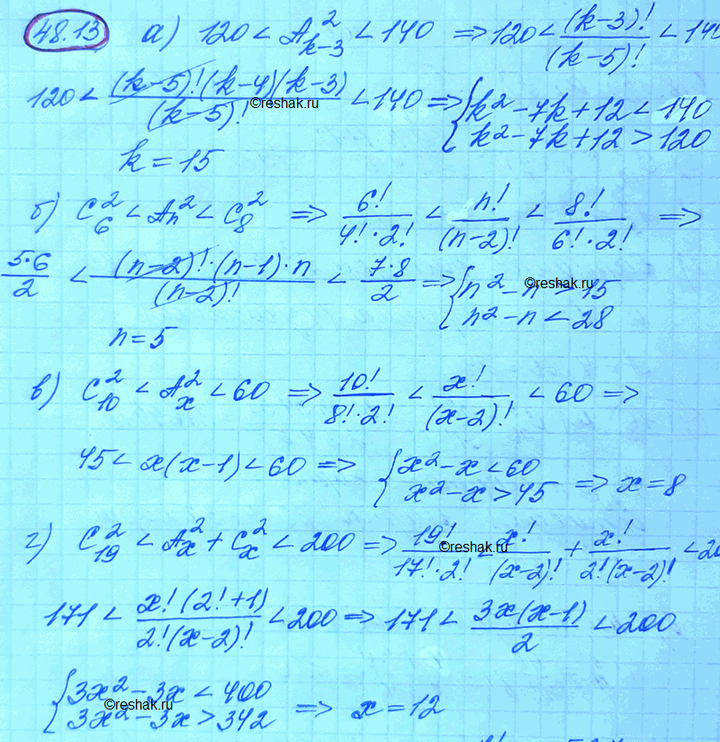 48.13 а) 120 < A²ₖ₋₃ < 140 => 120 < (k-3)!/(k-5)! < 140
120 < (k-5)!(k-4)(k-3)/(k-5)! < 140 => { k² - 7k + 12 < 140
k² - 7k + 12 > 120
k = 15
©reshak.ru
б) C²₆ < Aₙ² < C²₈ => 6!/(4!·2!) < n!/(n-2)! < 8!/(6!·2!) =>
5·6/2 < (n-2)!·(n-1)·n/(n-2)! < 7·8/2 => { n² - n > 15
n² - n < 28
©reshak.ru
n = 5
в) C²₁₀ < A²ₓ < 60 => 10!/(8!·2!) < x!/(x-2)! < 60 =>
45 < x(x-1) < 60 => { x² - x < 60
x² - x > 45 => x = 8
г) C²₁₉ < A²ₓ + C²ₓ < 200 => 19!/(17!·2!) < x!/(x-2)! + x!/(2!(x-2)!) < 20
©reshak.ru
171 < x!(2!+1)/(2!(x-2)!) < 200 => 171 < 3x(x-1)/2 < 200
{ 3x² - 3x < 400
3x² - 3x > 342 => x = 12
©reshak.ru